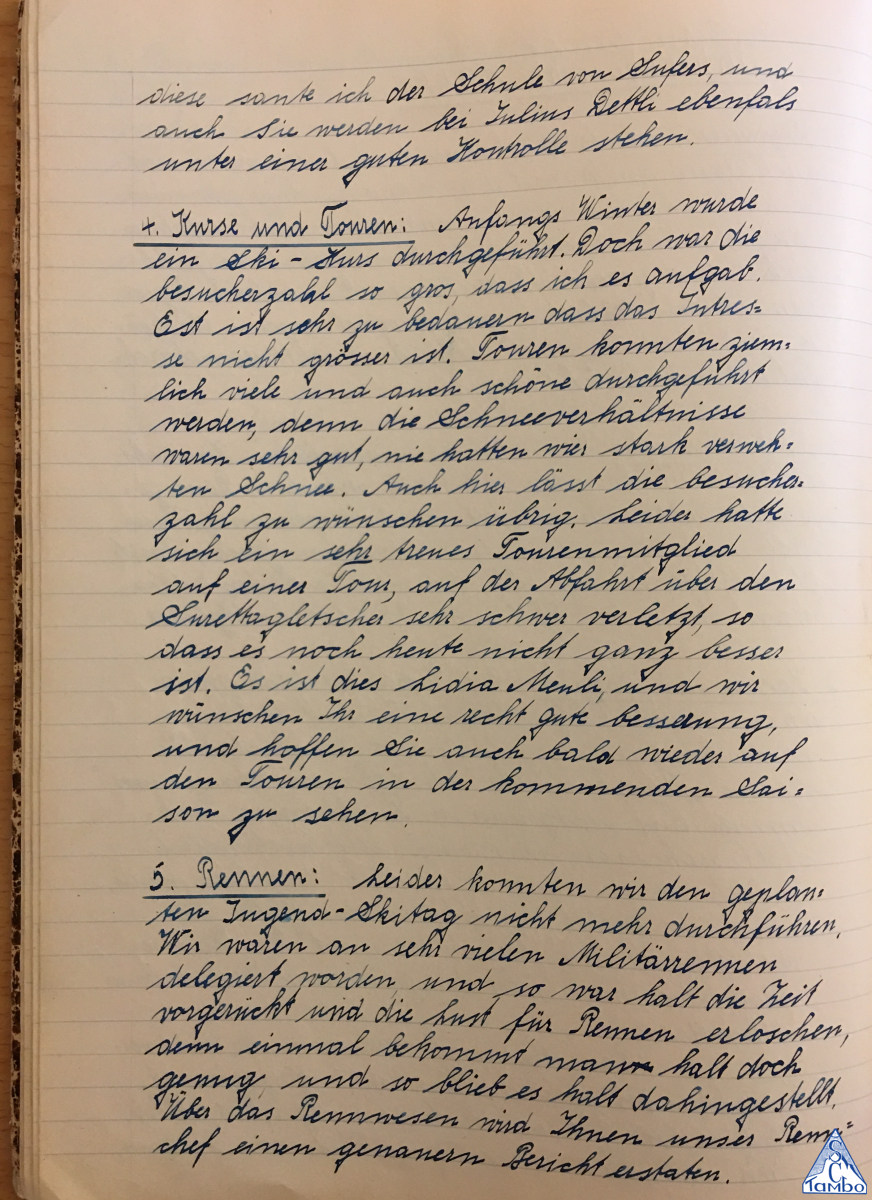 diese sante ich der Schule von Sufers, und
auch Sie werden bei Julius Dettli ebenfals
unter einer guten Kontrolle stehen.
4. Kurse und Touren: Anfangs Winter wurde
ein Ski-Kurs durchgeführt. Doch war die
besucherzahl so gros, dass ich es aufgab.
Est ist sehr zu bedauern dass das Intres=
se nicht grösser ist. Touren konnten ziem=
lich viele und auch schöne durchgeführt
werden, denn die Schneeverhältnisse
waren sehr gut, nie hatten wier stark verweh=
ten Schnee. Auch hier lässt die besucher=
zahl zu wünschen übrig. Leider hatte
sich ein sehr treues Tourenmitglied
auf einer Tour, auf der Abfahrt über den
Surettagletscher sehr schwer verletzt, so
dass es noch heute nicht ganz besser
ist. Es ist dies Lidia Meuli, und wir
wünschen Ihr eine recht gute besserung,
und hoffen Sie auch bald wieder auf
den Touren in der kommenden Sai=
son zu sehen.
5. Rennen: Leider konnten wir den geplan=
ten Jugend-Skitag nicht mehr durchführen.
Wir waren an sehr vielen Militärrennen
delegiert worden, und so war halt die Zeit
vorgerückt und die Lust für Rennen erloschen,
denn einmal bekommt man halt doch
genug, und so blieb es halt dahingestellt.
Über das Rennwesen wird Ihnen unser Renn=
chef einen genauern Bericht erstaten.
SC
Tambo